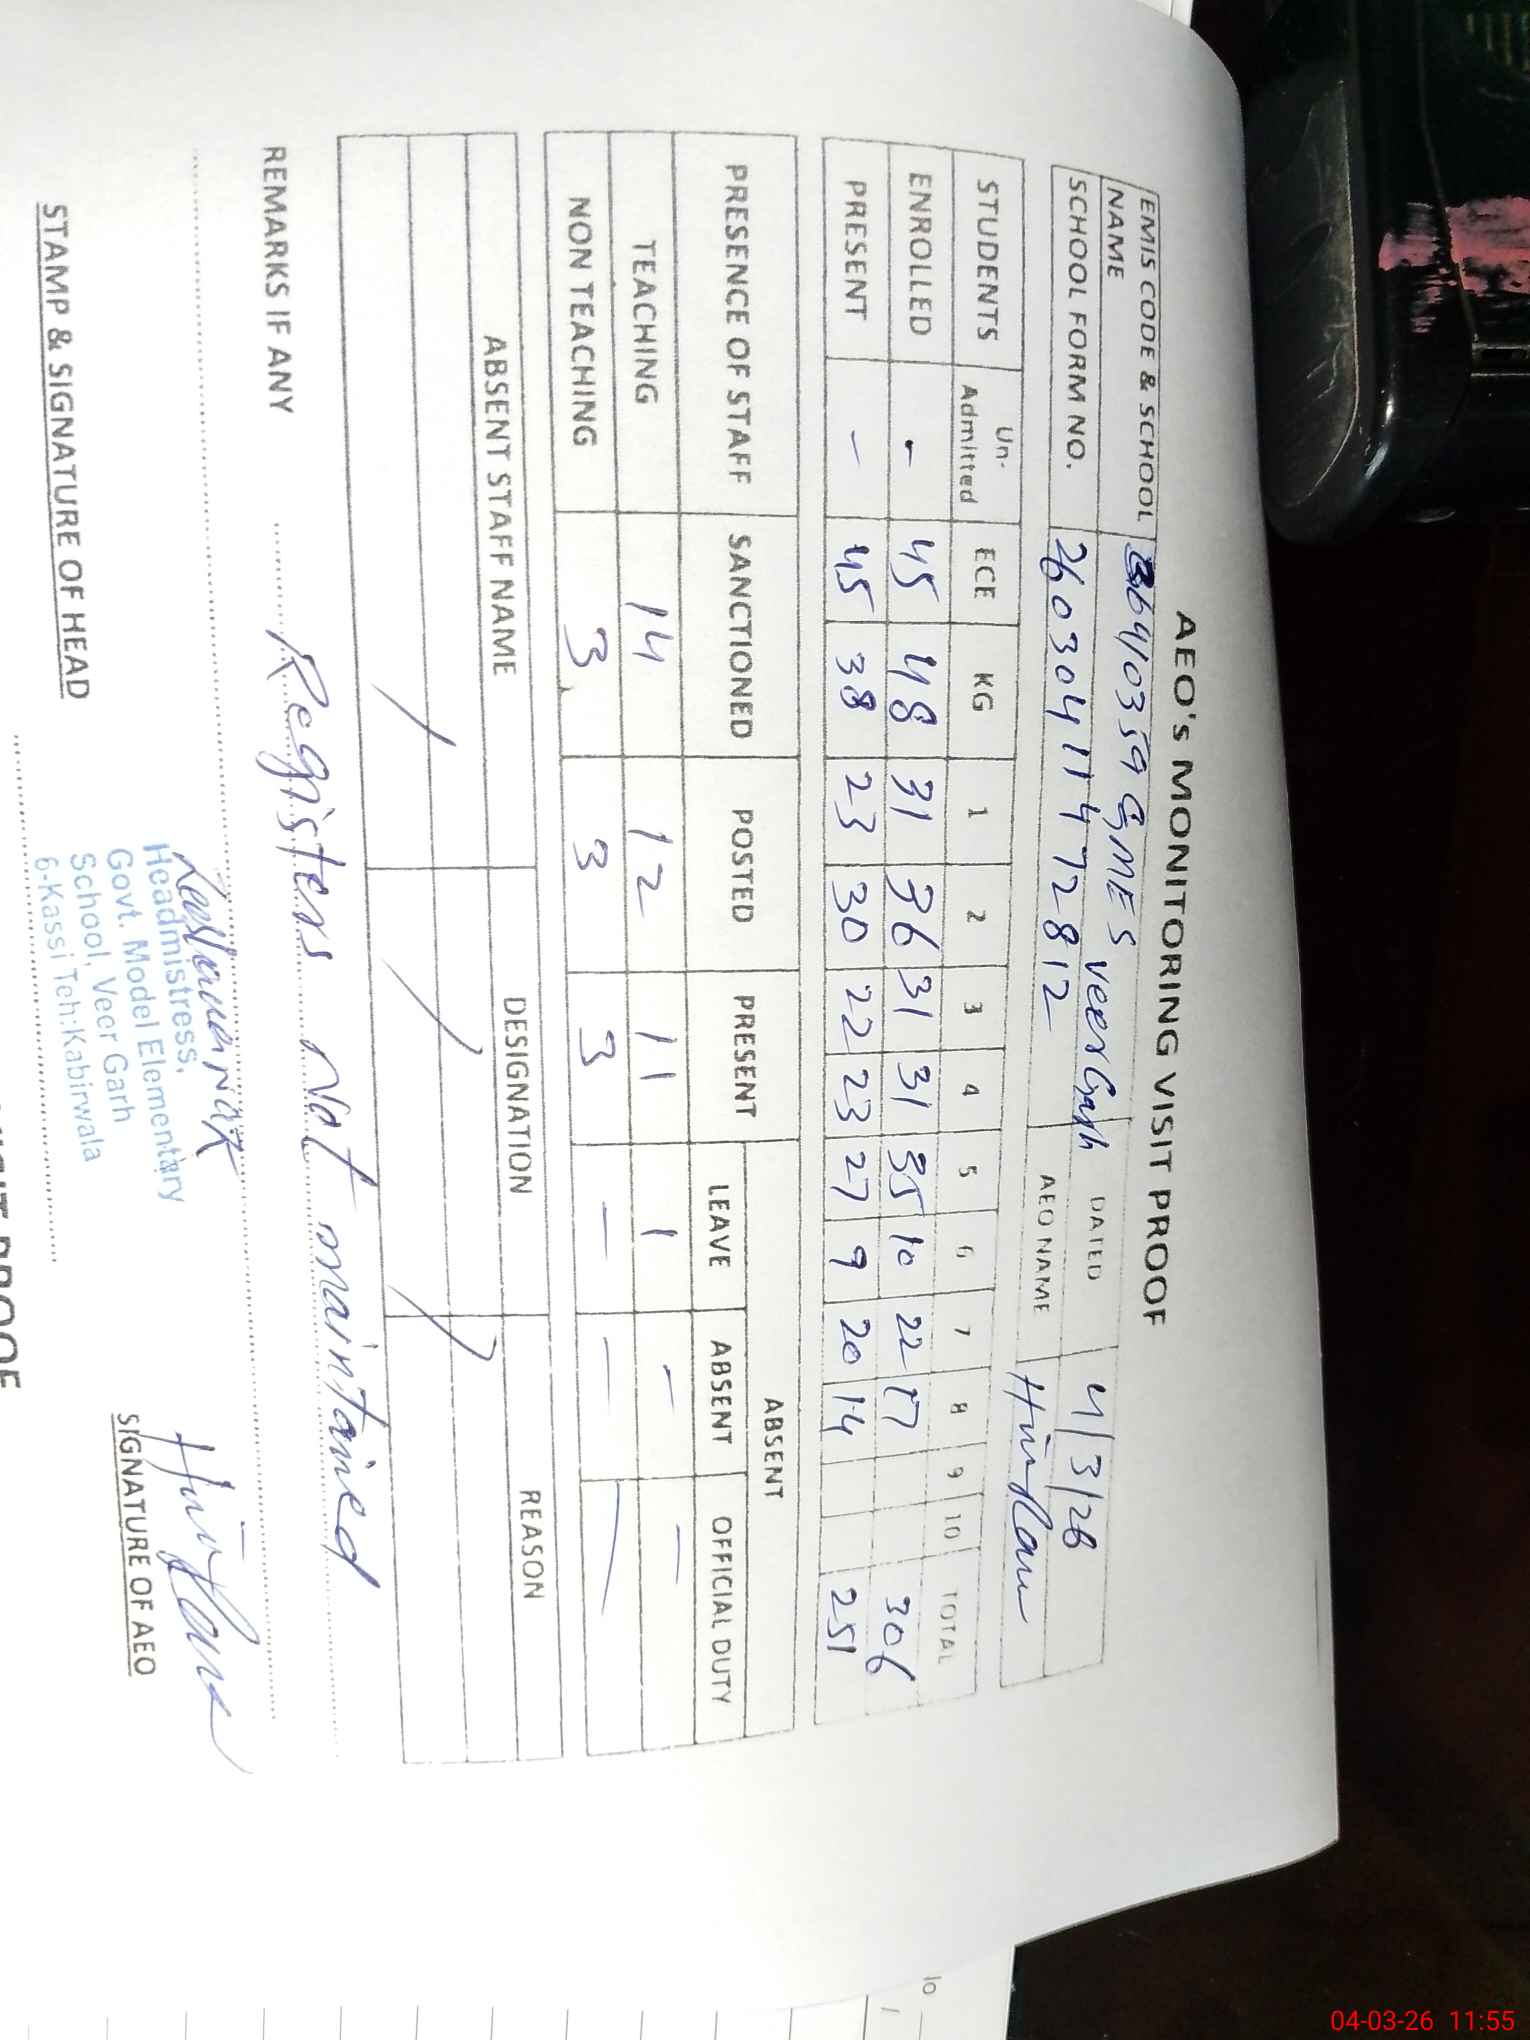 AEO's MONITORING VISIT PROOF
EMIS CODE & SCHOOL NAME 36410359 GMES Veer Garh DATED 4/3/26
SCHOOL FORM NO. 26030411472812 AEO NAME
STUDENTS Un-Admitted ECE KG 1 2 3 4 5 6 7 8 9 10 TOTAL
ENROLLED - 45 48 31 36 31 31 35 10 22 17 306
PRESENT - 45 38 23 30 22 23 27 9 20 14 251
PRESENCE OF STAFF SANCTIONED POSTED PRESENT ABSENT
LEAVE ABSENT OFFICIAL DUTY
TEACHING 14 12 11 1 - -
NON TEACHING 3 3 3 - - -
ABSENT STAFF NAME DESIGNATION REASON
REMARKS IF ANY Registers not maintained
Headmistress,
Govt. Model Elementary
School, Veer Garh
6-Kassi Teh:Kabirwala
STAMP & SIGNATURE OF HEAD
SIGNATURE OF AEO
10
04-03-26 11:55